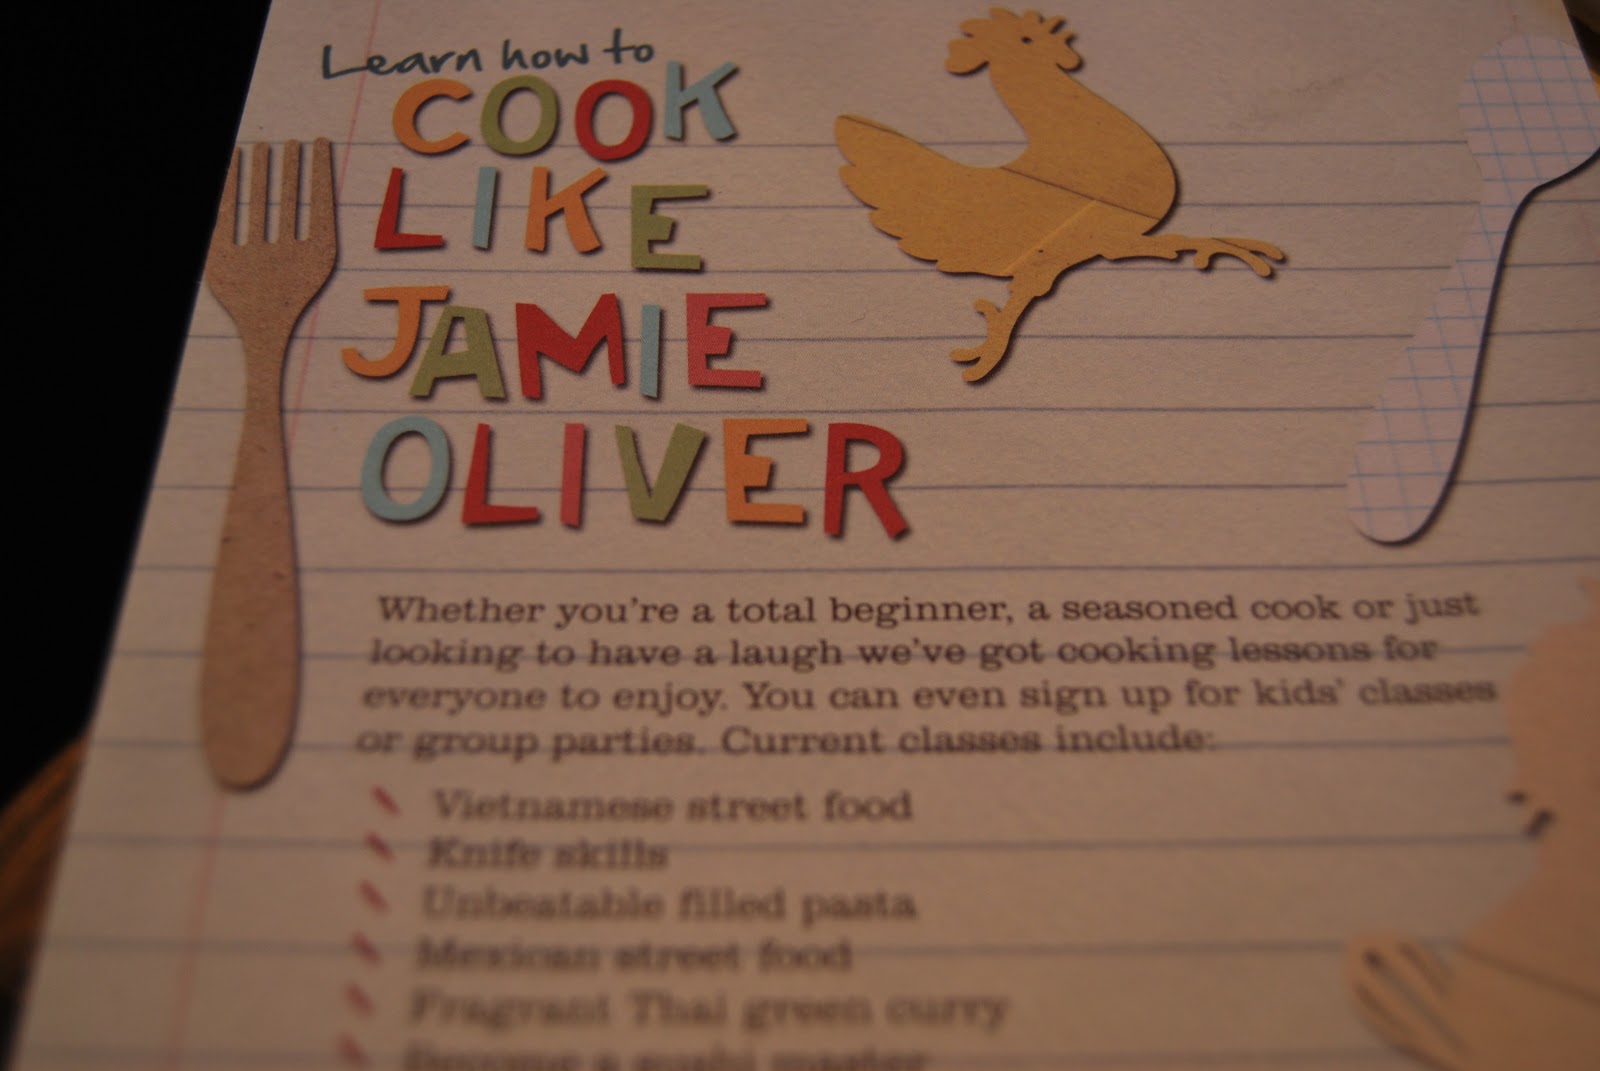 Learn how to
COOK
LIKE
JAMIE
OLIVER
Whether you're a total beginner, a seasoned cook or just
looking to have a laugh we've got cooking lessons for
everyone to enjoy. You can even sign up for kids' classes
or group parties. Current classes include:
Vietnamese street food
Knife skills
Unbeatable filled pasta
Mexican street food
Fragrant Thai green curry
Become a sushi master